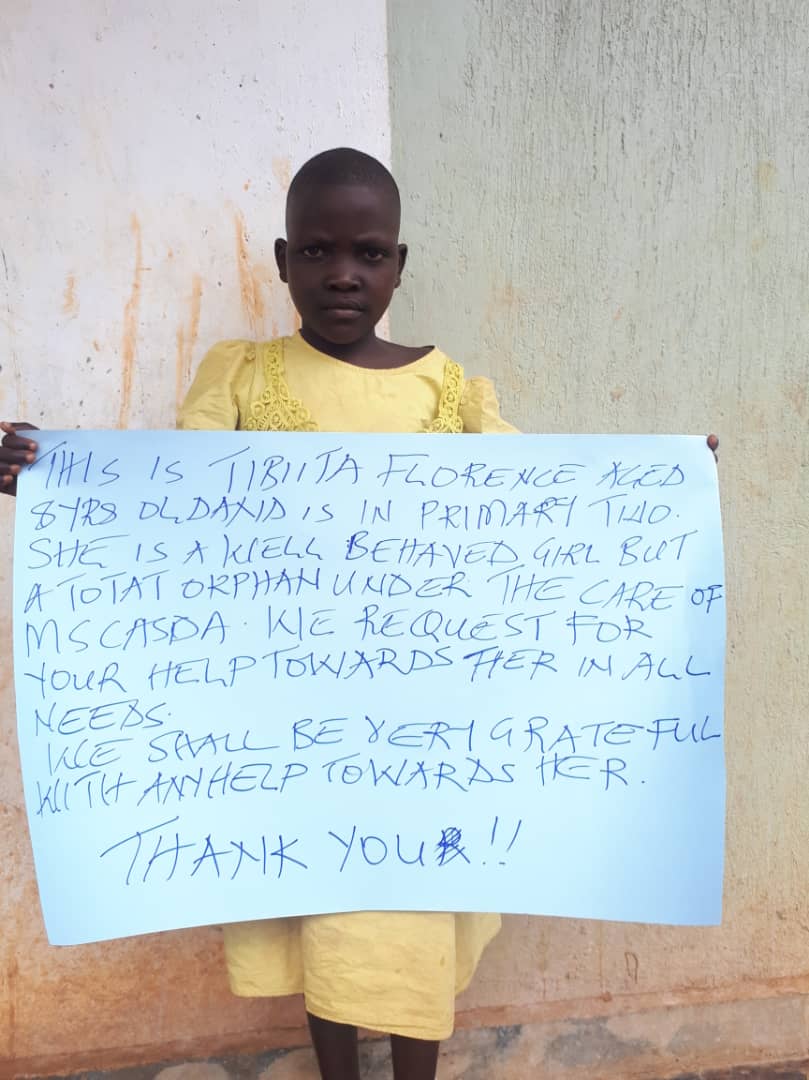 THIS IS TIBIITA FLORENCE AGED
8YRS OLDAND IS IN PRIMARY TWO.
SHE IS A WELL BEHAVED GIRL BUT
A TOTAT ORPHAN UNDER THE CARE OF
MSCASDA. WE REQUEST FOR
YOUR HELP TOWARDS HER IN ALL
NEEDS.
WE SHALL BE VERY GRATEFUL
WITH ANY HELP TOWARDS HER.
THANK YOU !!